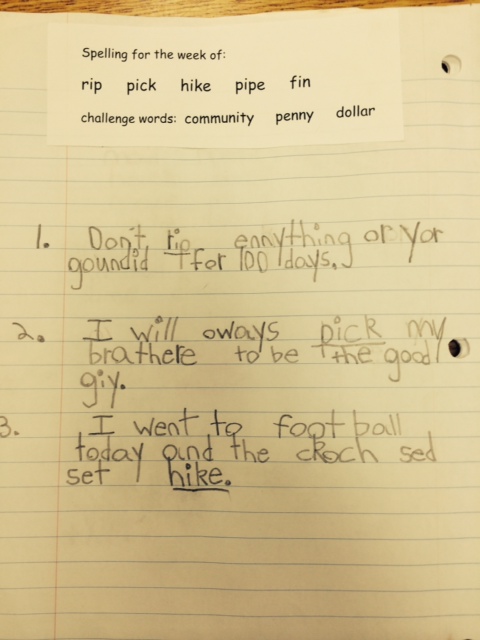 Spelling for the week of:
rip pick hike pipe fin
challenge words: community penny dollar
1. Don't rip ennything or yor
goundid for 100 days.
2. I will oways pick my
brathere to be the good
giy.
3. I went to foot ball
today and the coch sed
set hike.